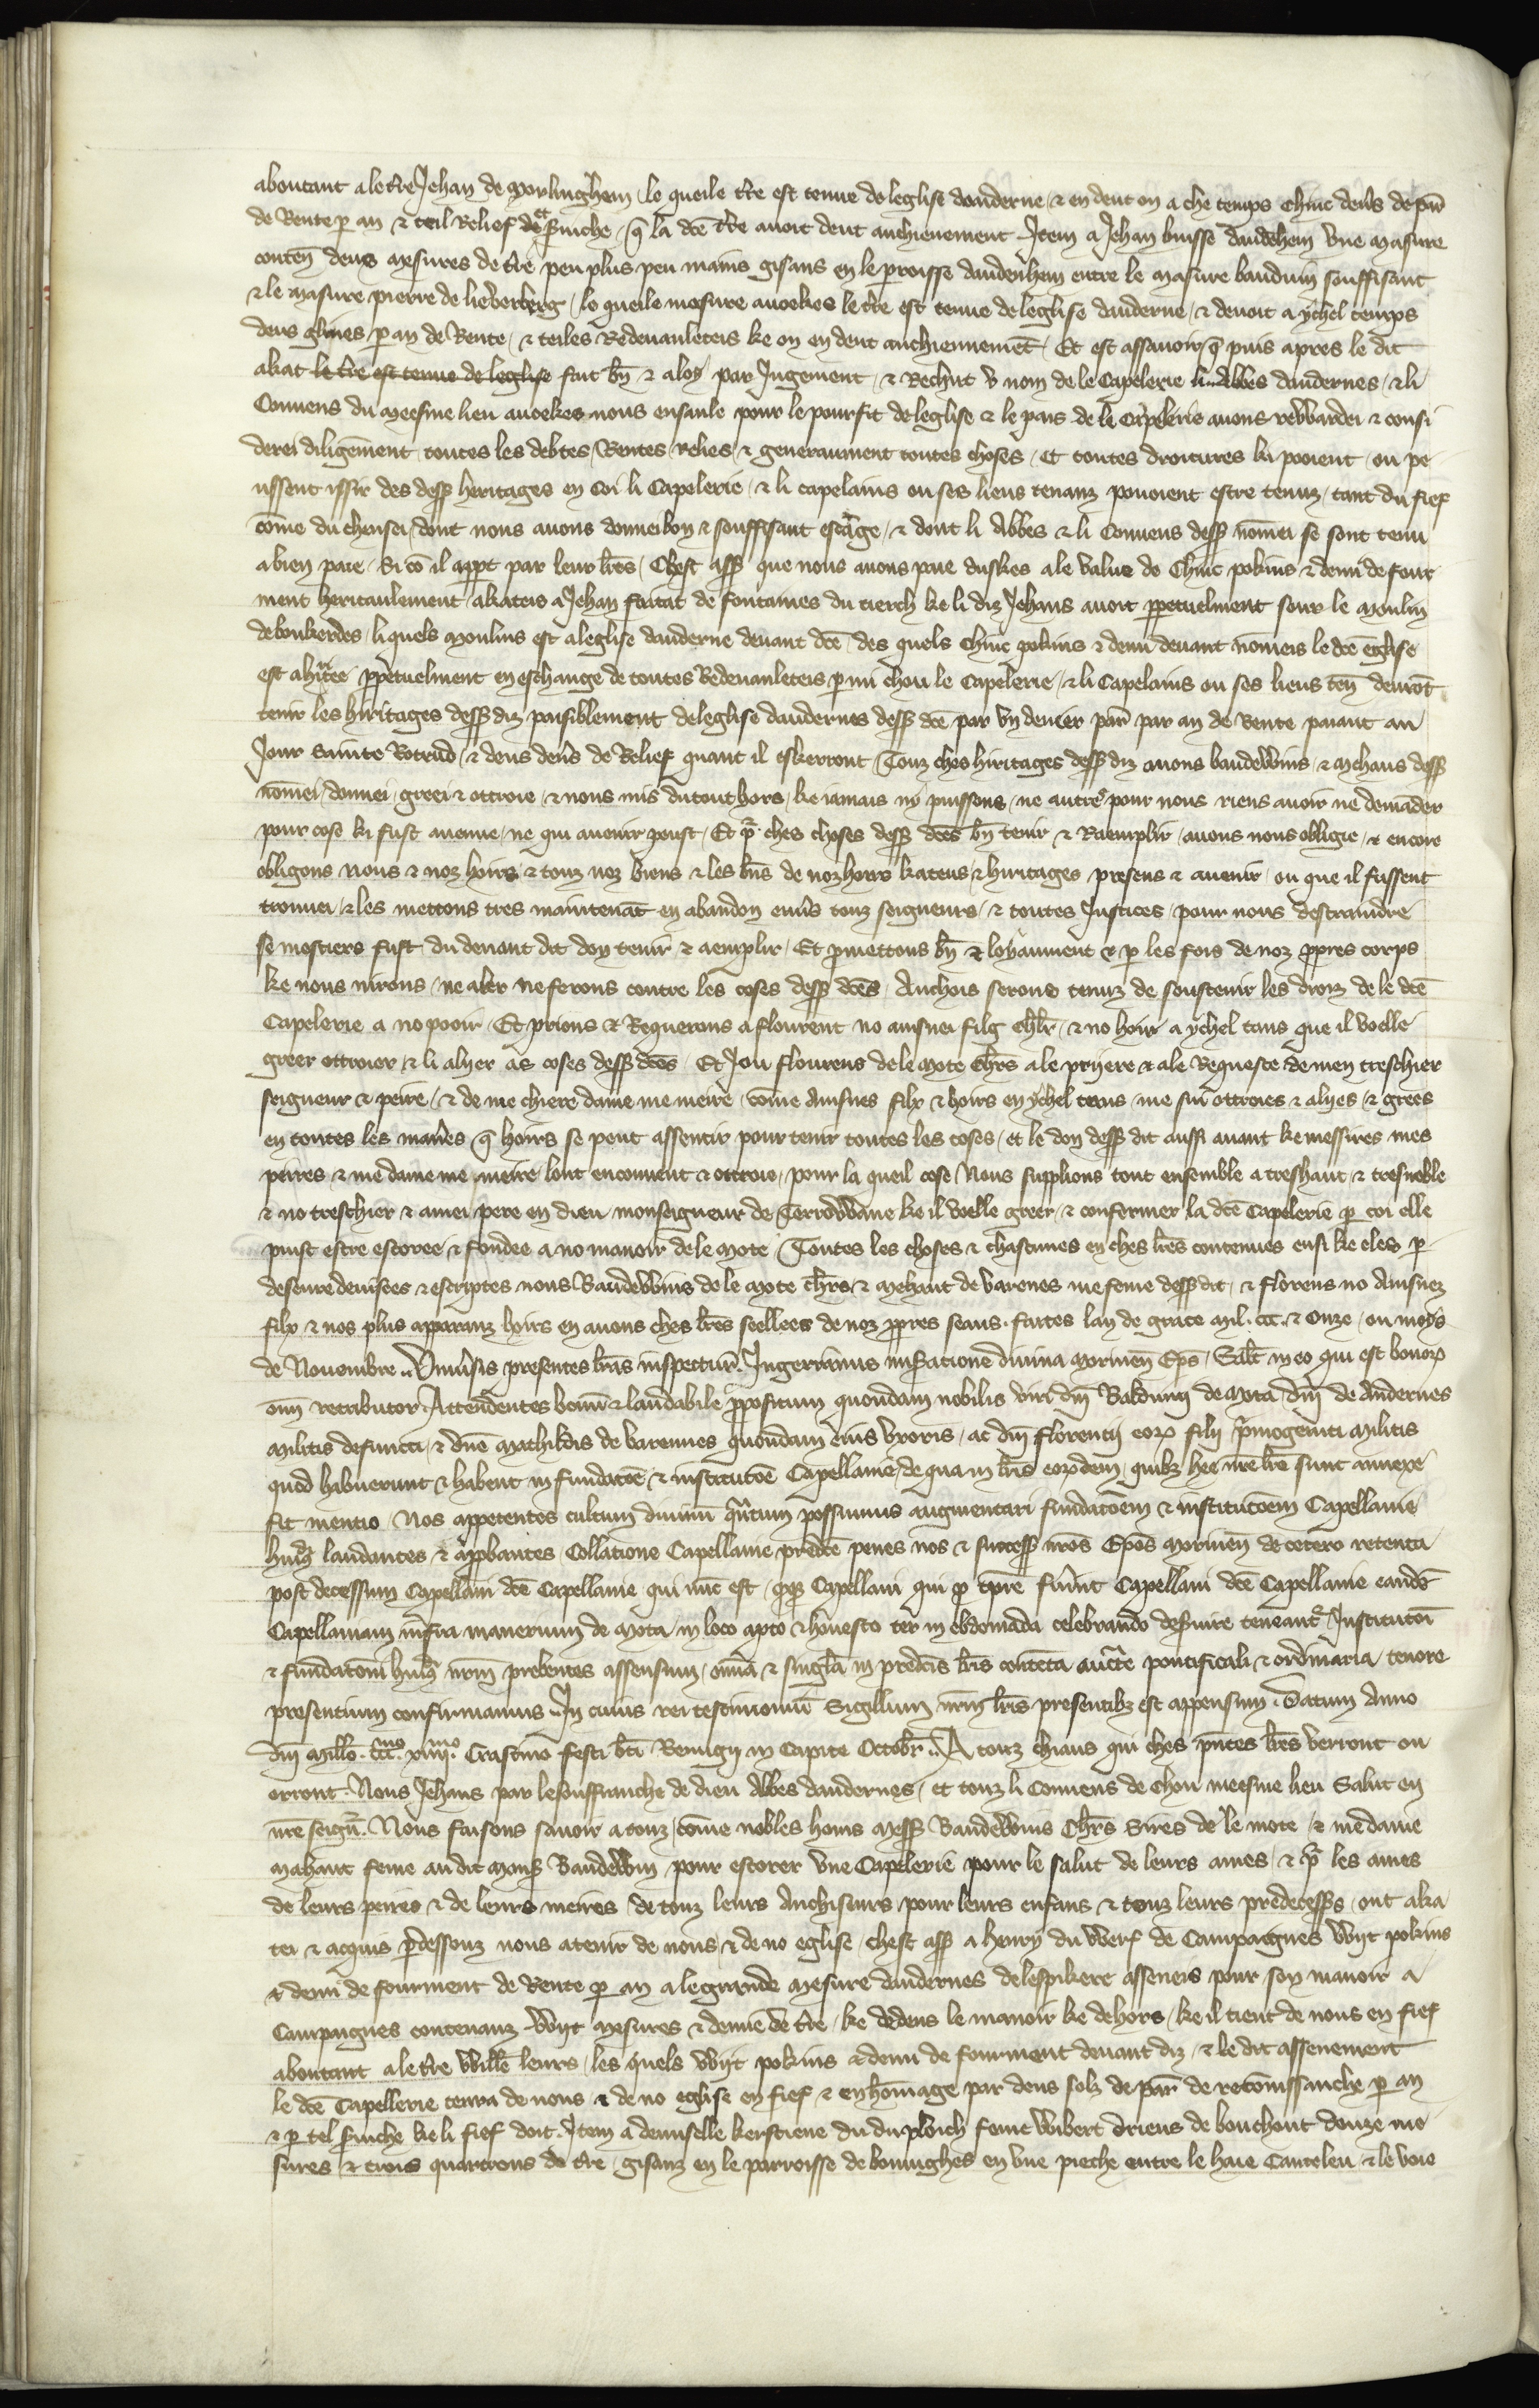 aboutant a le t're Jehan de Morlinghem / le queile t're est tenue de leglise dauderne / & en deut on a che temps Chinc den's de par'
de Rente p an & teil Relief & seruiche / q la dc'e t're auoit deut anchienement Item a Jehan buisse daudehem vne masure
conten' deus mesures de t're peu plus peu mains gisans en le peroisse daudenhem entre le masure bauduin souffisant
& le masure pierre de lieberberg / le queile mesure auoekes le t're est tenue de leglise dauderne / & deuoit a ychel temps
deus glines p an de Rente / & teiles Redeuauleteis ke on en deut anchiennemet / Et est assauoir q puis apres le dit
akat le t're est tenue de leglise fait bn' & aloy par Jugement / & Rechut v nom de le Capelerie li abbes daudernes / & li
Conuens du meesme lieu auoekes nous ensanle pour le pourfit de leglise & le pais de le Capelerie auons rewardei & consi
derei diligem'ent toutes les debtes / Rentes / relies / & generaument toutes choses / Et toutes droitures ki pooient / ou pe
ussent issir des dess' heritages en coi li Capelerie / & li capelains ou ses liens tenanz pouoient estre tenuz / tant du fief
co'me du chensei / dont nous auons donnei bon & souffisant esca'ge / & dont li Abbes & li Conuens dess' no'mei se sont tenu
a bien paie / Si co' il appt par leur lr'es / Chest ass' que nous auons paie duskes a le value de Chinc pokins & demi de four
ment heritaulement akateis a Jehan fcitat de fontaines du tierch ke li diz Jehans auoit ppetuelment seur le moulin
de boukerdes / li quels moulins est a leglise dauderne deuant dc'e des quels Chinc pokins & demi deuant no'meis le dc'e eglise
est ahiretee ppetuelment en eschange de toutes Redeuauleteis p mi chou le Capelerie / & li Capelains ou ses liens ten' deurot
tenir les hiritages dess' diz paisiblement de leglise daudernes dess' dc'e par vn denier par' par an de Rente paiant au
Jour Sainte Rotrud / & deus den's de Relief quant il eskerront Touz ches hiritages dess' diz auons baudewins / & Mehaus dess'
no'mei / donnei / greei & ottroie / & nous mis du tout hors / ke iamais ny puissons / ne autre pour nous riens auoir ne demader
pour cose ki fust auenue / ne qui auenir peust / Et p' ches choses dess' dc'es bn' tenir & Raemplir / auons nous obligie / & encore
obligons nous & noz hoirs / & touz noz biens & les bn's de noz hoirs kateus / & hiritages presens & auenir / ou que il fussent
trouuei / & les mettons tres maintenat en abandon enu's touz seigneurs / & toutes Justices / pour nous destraindre
se mestiers fust / du deuant dit don tenir & aemplir / Et pmettons bn' & loyaument & p les fois de noz ppres corps
ke nous nirons / ne aler ne ferons contre les coses dess' dc'es Anchois serons tenuz de soustenir les droiz de le dc'e
Capelerie a no pooir / Et prions & Requerons a flourent no ainsnei filg ch'lr' / & no hoir a ychel tans que il voelle
greer ottroier & li alyer as coses dess' dc'es Et Jou flourens de le Mote Ch'rs a le pryere & a le Requeste de men treschier
seigneur & peire / & de me chiere dame me meire / co'me Ainsnes filx & hoirs en ychel tans / me sui ottroies & alyes / & grees
en toutes les man'es q hoirs se peut assentir pour tenir toutes les coses / et le don dess' dit aussi auant ke messires mes
peires & me dame me meire lont enconuent & ottroie / pour la queil cose Nous supplions tout ensemble a treshaut & tresnoble
& no treschier & amei pere en dieu monseigneur de Terrowane ke il voelle greer / & confermer la dc'e Capelerie p coi elle
puist estre estoree & fondee a no manoir de le Mote / Toutes les choses & chascunes en ches lr'es contenues ensi ke eles p
deseure deuisees & escriptes nous Baudewins de le Mote ch'rs & Mehaut de Varenes me feme dess' dit / & florens no Ainsnez
filx & nos plus apparanz hoirs en auons ches lr'es seellees de noz ppres seaus. faites lan de grace Mil. ccc. & Onze / ou moys
de Nouembre .. Vniu'sis presentes lr'as inspectur'. Ingerrannus mis'atione diuina Morinen' Ep's / Sal't in eo qui est bonor'
om' retributor Attendentes bonu' & laudabile ppositum quondam nobilis viri dn'i Balduini de Mota dn'i de Audernes
Militis defuncti / & dn'e Mathildis de Varennes quondam eius vxoris / ac dn'i florentij eor' filij p'mogeniti Militis
quod habuerunt & habent in fundatoe' & institutoe' Capellanie / de qua in lr'is eor'dem / quib' hee nr'e lr'e sunt annexe
fit mentio Nos appetentes cultum diuinu' qu'tum possumus augmentari fundatoe'm & institutoe'm Capellanie
hui' laudantes & appbantes / Collatione Capellanie predc'e penes nos & success' nr'os Ep'os Morinen' de cetero retenta
post decessum Capellani dc'e Capellanie qui nu'c est / Capellani qui p tp're fu'int Capellani dc'e Capellanie eande'
Capellaniam infra manerium de Mota in loco apto & honesto ter in ebdomada celebrando des'uire teneant' / Institutoi'
& fundatoi' hui' nr'm prebentes assensum / omi'a & sing'la in predc'is lr'is contenta auct'e pontificali & ordinaria / tenore
presentium confirmamus .. In cuius rei testimoniu' Sigillum nr'm lr'is presentib' est appensum . Datum Anno
dn'i Mill'o. ccc.mo xiiij.mo Crastino festi bt'i Remigij in Capite Octobr' .. A touz chiaus qui ches pn'tes lr'es verront ou
orront Nous Jehans par le souffranche de dieu Abbes daudernes / et touz li Conuens de chou meesme lieu Salut en
nr'e seign'. Nous faisons sauoir a touz / co'me nobles homs Mess' Baudewins Ch'rs Sires de le mote / & me dame
Mahaut feme au dit Mons' Baudewin pour estorer vne Capelerie pour le salut de leurs ames / & p' les ames
de leurs peires & de leurs meires de touz leurs Anchiseurs / pour leurs enfans & touz leurs predecess's / ont aka
tei & acquis p'dessouz nous a tenir de nous & de no eglise / chest ass' a henry du Werf de Campaignes Wyt pokins
& demi de fourment de Rente p an a le grande mesure daudernes de lespikere asseneis pour son manoir a
Campaignes contenanz Wyt mesures & demie de t're / ke dedens le manoir ke dehors / ke il tient de nous en fief
aboutant a le t're Will'e leurs / les quels Wyt pokins & demi de fourment deuant diz / & le dit assenement
le dc'e Capellerie tenra de nous & de no eglise en fief & en ho'mage par deus solz de par' de reconissanche p an
& p tel seruiche ke li fief doit. Item a demiselle kerstiene du du ploich feme Wibert driens de bouchout douze me
sures & trois quartrons de t're / gisanz en le parroisse de bouinghes en vne pieche entre le haie Canteleu & le voie